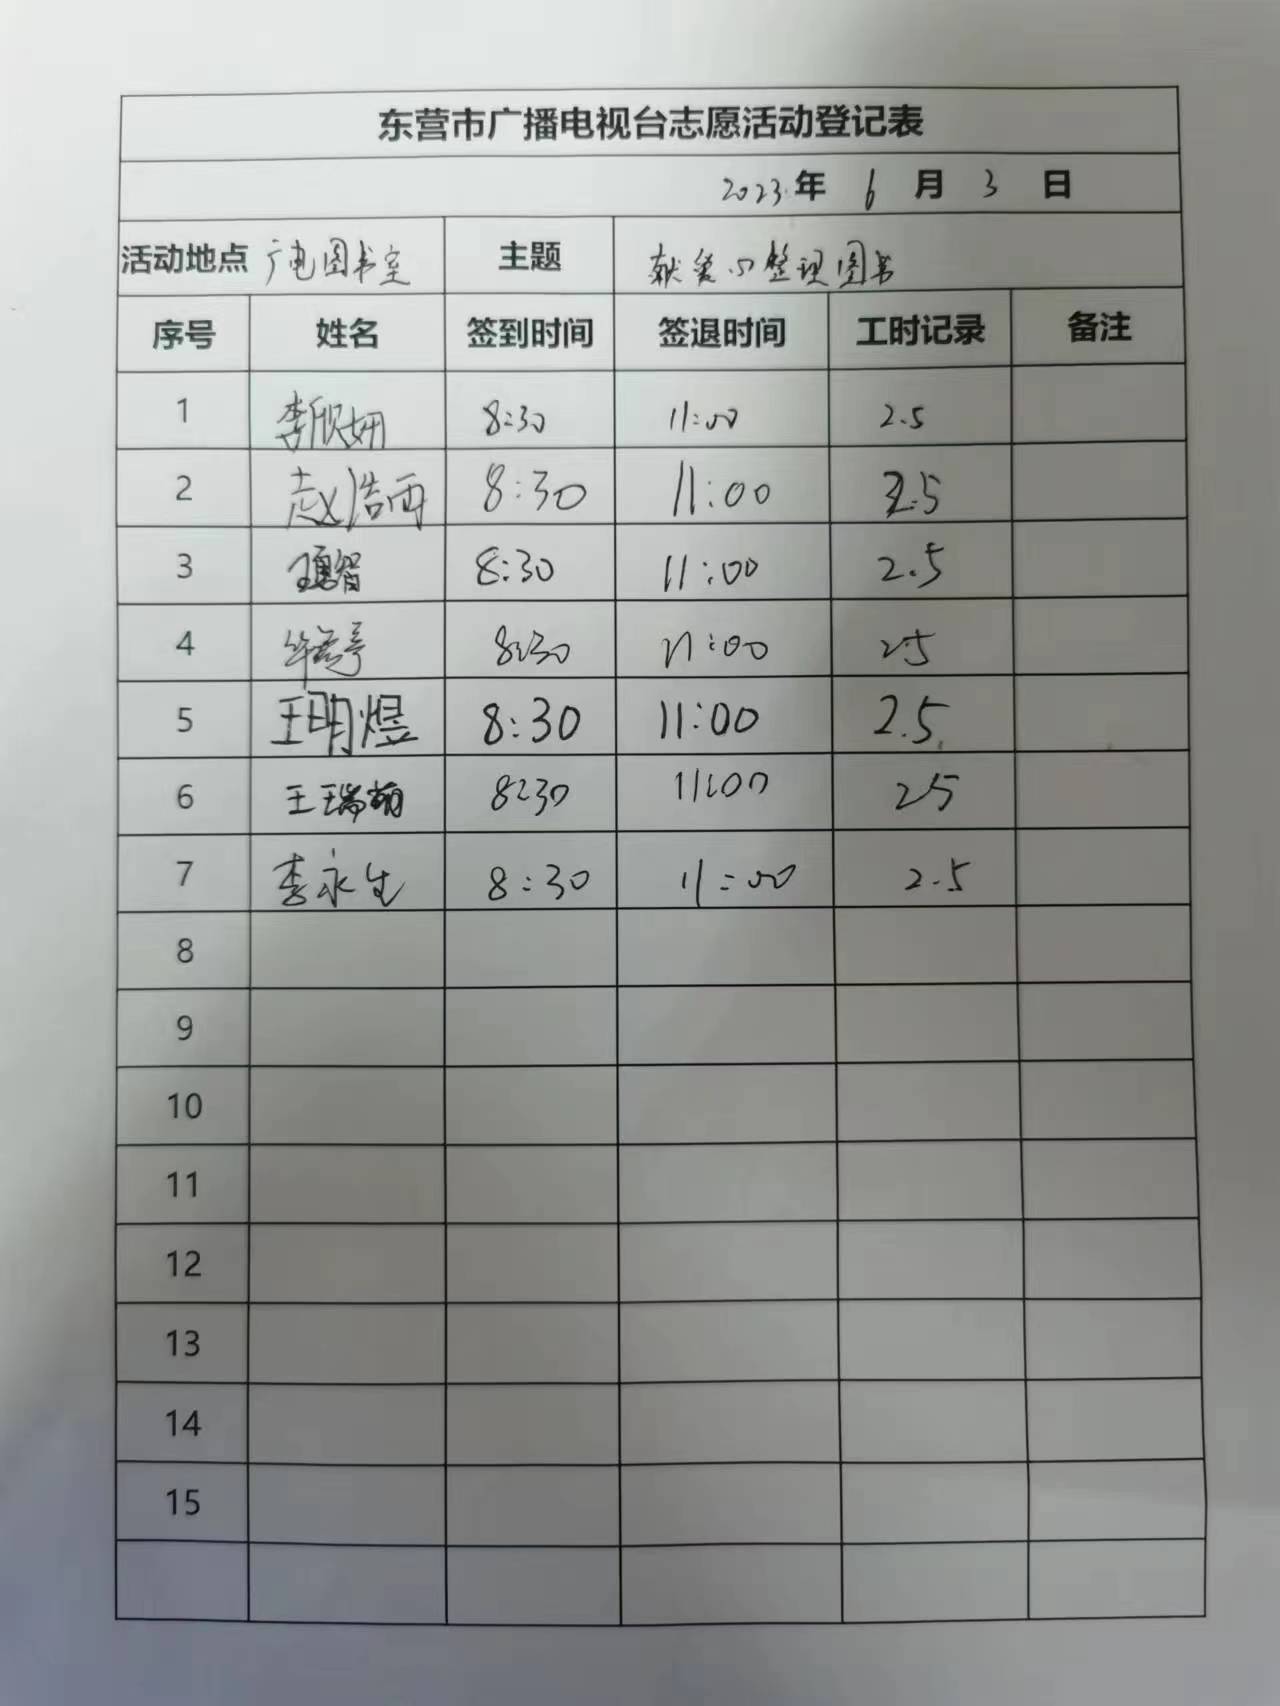 东营市广播电视台志愿活动登记表
2023年 6 月 3 日
活动地点 广电图书室 主题 献爱心整理图书
序号 姓名 签到时间 签退时间 工时记录 备注
1 李欣妍 8:30 11:00 2.5
2 赵浩西 8:30 11:00 2.5
3 8:30 11:00 2.5
4 8:30 11:00 2.5
5 王明煜 8:30 11:00 2.5
6 王瑞萌 8:30 11:00 25
7 李永生 8:30 11:00 2.5
8
9
10
11
12
13
14
15